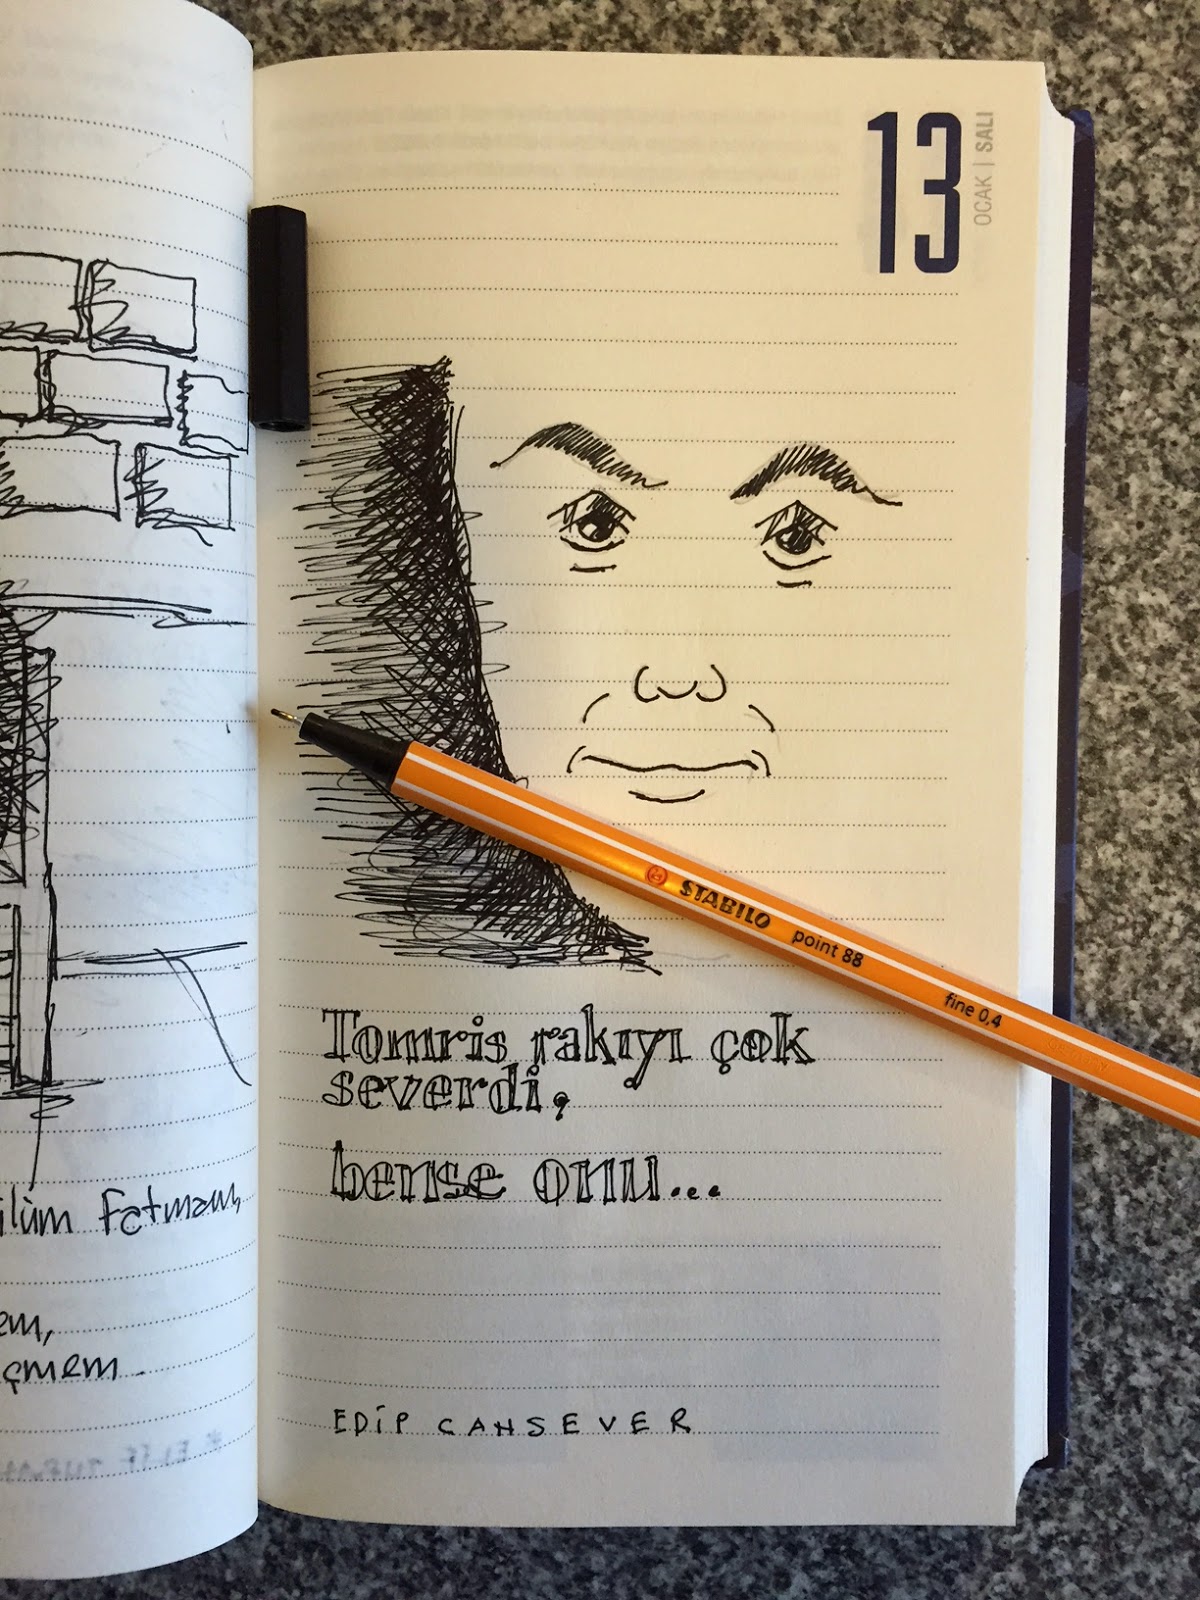 13
OCAK | SALI
STABILO point 88 fine 0,4
Tomris rakıyı çok
severdi,
bense onu...
EDİP CANSEVER
Fatmam,